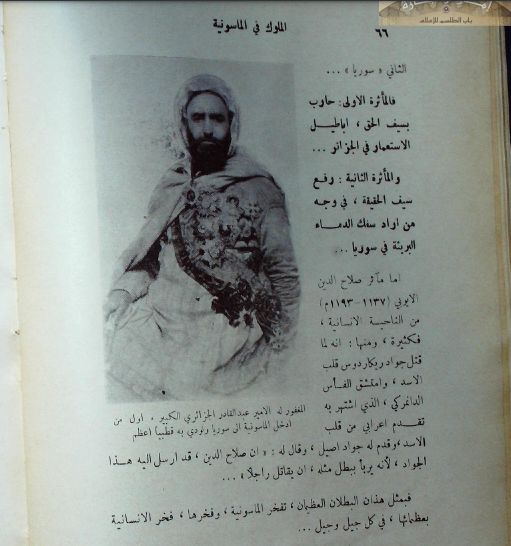 باب الطلسم للإعلام
٦٦
الملوك في الماسونية
الثاني « سوريا » ...
فالمأثرة الاولى : حارب
بسيف الحق ، اباطيل
الاستعمار في الجزائر ...
والمأثرة الثانية : رفع
سيف الحقيقة ، في وجه
من اراد سفك الدماء
البريئة في سوريا ...
اما مآثر صلاح الدين
الايوبي (١١٣٧-١١٩٣م)
من الناحية الانسانية ،
فكثيرة ، ومنها : انه لما
قتل جواد ريكاردوس قلب
الاسد ، وامتشق الفأس
الدانمركي ، الذي اشتهر به
تقدم اعرابي من قلب
المغفور له الامير عبدالقادر الجزائري الكبير . اول من
ادخل الماسونية الى سوريا ونودي به قطبيا اعظم
الاسد ، وقدم له جواد اصيل ، وقال له : « ان صلاح الدين ، قد ارسل اليه هذا
الجواد ، لأنه يربأ ببطل مثله ، ان يقاتل راجلا » ...
فبمثل هذان البطلان العظيمان ، تفخر الماسونية ، وفخرها ، فخر الانسانية
بعظمائها ، في كل جيل وجيل ...